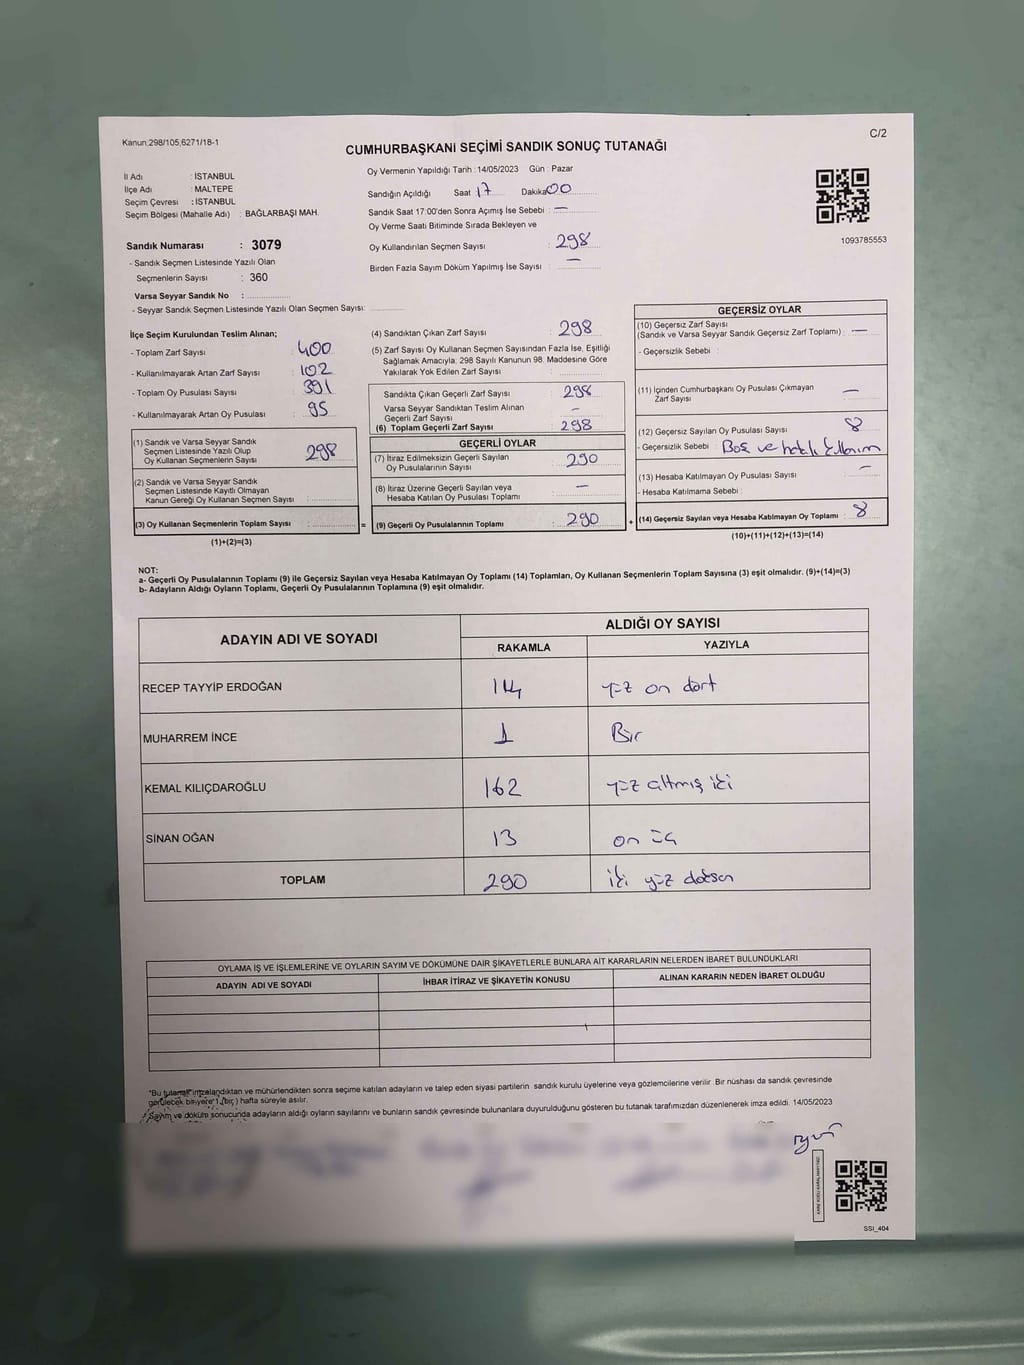 Kanun.298/105,6271/18-1
C/2
CUMHURBAŞKANI SEÇİMİ SANDIK SONUÇ TUTANAĞI
İl Adı : İSTANBUL
İlçe Adı : MALTEPE
Seçim Çevresi : İSTANBUL
Seçim Bölgesi (Mahalle Adı) : BAĞLARBAŞI MAH.
Oy Vermenin Yapıldığı Tarih : 14/05/2023 Gün : Pazar
Sandığın Açıldığı Saat 17 Dakika 00
Sandık Saat 17:00'den Sonra Açılmış İse Sebebi : —
Oy Verme Saati Bitiminde Sırada Bekleyen ve
Oy Kullandırılan Seçmen Sayısı : 298
Birden Fazla Sayım Döküm Yapılmış İse Sayısı : —
1093785553
Sandık Numarası : 3079
- Sandık Seçmen Listesinde Yazılı Olan
Seçmenlerin Sayısı : 360
Varsa Seyyar Sandık No :
- Seyyar Sandık Seçmen Listesinde Yazılı Olan Seçmen Sayısı:
İlçe Seçim Kurulundan Teslim Alınan;
- Toplam Zarf Sayısı : 400
- Kullanılmayarak Artan Zarf Sayısı : 102
- Toplam Oy Pusulası Sayısı : 391
- Kullanılmayarak Artan Oy Pusulası : 95
(1) Sandık ve Varsa Seyyar Sandık
Seçmen Listesinde Yazılı Olup
Oy Kullanan Seçmenlerin Sayısı : 298
(2) Sandık ve Varsa Seyyar Sandık
Seçmen Listesinde Kayıtlı Olmayan
Kanun Gereği Oy Kullanan Seçmen Sayısı :
(3) Oy Kullanan Seçmenlerin Toplam Sayısı :
(1)+(2)=(3)
(4) Sandıktan Çıkan Zarf Sayısı : 298
(5) Zarf Sayısı Oy Kullanan Seçmen Sayısından Fazla İse, Eşitliği
Sağlamak Amacıyla; 298 Sayılı Kanunun 98. Maddesine Göre
Yakılarak Yok Edilen Zarf Sayısı :
Sandıkta Çıkan Geçerli Zarf Sayısı : 298
Varsa Seyyar Sandıktan Teslim Alınan
Geçerli Zarf Sayısı : —
(6) Toplam Geçerli Zarf Sayısı : 298
GEÇERLİ OYLAR
(7) İtiraz Edilmeksizin Geçerli Sayılan
Oy Pusulalarının Sayısı : 290
(8) İtiraz Üzerine Geçerli Sayılan veya
Hesaba Katılan Oy Pusulası Toplamı : —
= (9) Geçerli Oy Pusulalarının Toplamı : 290
GEÇERSİZ OYLAR
(10) Geçersiz Zarf Sayısı
(Sandık ve Varsa Seyyar Sandık Geçersiz Zarf Toplamı) : —
- Geçersizlik Sebebi :
(11) İçinden Cumhurbaşkanı Oy Pusulası Çıkmayan
Zarf Sayısı : —
(12) Geçersiz Sayılan Oy Pusulası Sayısı : 8
- Geçersizlik Sebebi : Boş ve hatalı kullanım
(13) Hesaba Katılmayan Oy Pusulası Sayısı : —
- Hesaba Katılmama Sebebi :
+ (14) Geçersiz Sayılan veya Hesaba Katılmayan Oy Toplamı : 8
(10)+(11)+(12)+(13)=(14)
NOT:
a- Geçerli Oy Pusulalarının Toplamı (9) ile Geçersiz Sayılan veya Hesaba Katılmayan Oy Toplamı (14) Toplamları, Oy Kullanan Seçmenlerin Toplam Sayısına (3) eşit olmalıdır. (9)+(14)=(3)
b- Adayların Aldığı Oyların Toplamı, Geçerli Oy Pusulalarının Toplamına (9) eşit olmalıdır.
ADAYIN ADI VE SOYADI
ALDIĞI OY SAYISI
RAKAMLA YAZIYLA
RECEP TAYYİP ERDOĞAN 114 yüz on dört
MUHARREM İNCE 1 Bir
KEMAL KILIÇDAROĞLU 162 yüz altmış iki
SİNAN OĞAN 13 on üç
TOPLAM 290 iki yüz doksan
OYLAMA İŞ VE İŞLEMLERİNE VE OYLARIN SAYIM VE DÖKÜMÜNE DAİR ŞİKAYETLERLE BUNLARA AİT KARARLARIN NELERDEN İBARET BULUNDUKLARI
ADAYIN ADI VE SOYADI İHBAR İTİRAZ VE ŞİKAYETİN KONUSU ALINAN KARARIN NEDEN İBARET OLDUĞU
"Bu tutanak imzalandıktan ve mühürlendikten sonra seçime katılan adayların ve talep eden siyasi partilerin sandık kurulu üyelerine veya gözlemcilerine verilir. Bir nüshası da sandık çevresinde
görülecek bir yere 1 (bir) hafta süreyle asılır.
Sayım ve döküm sonucunda adayların aldığı oyların sayılarını ve bunların sandık çevresinde bulunanlara duyurulduğunu gösteren bu tutanak tarafımızdan düzenlenerek imza edildi. 14/05/2023
SSİ_404